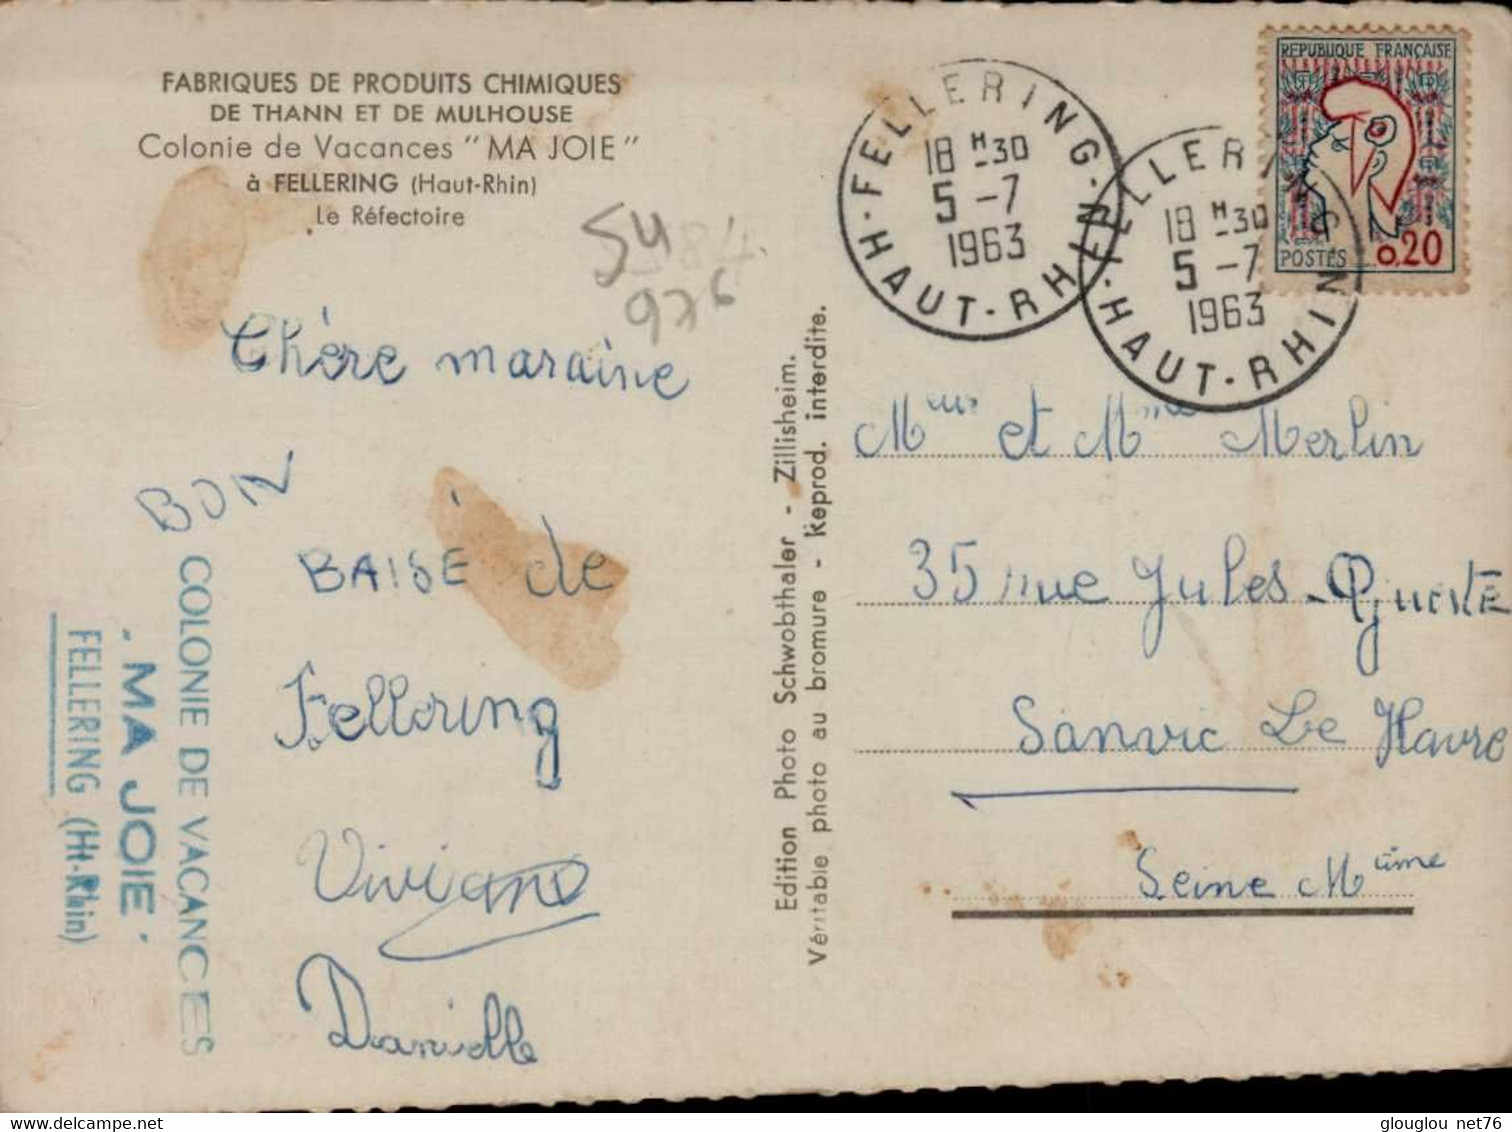 FABRIQUES DE PRODUITS CHIMIQUES
DE THANN ET DE MULHOUSE
Colonie de Vacances "MA JOIE"
à FELLERING (Haut-Rhin)
Le Réfectoire
54
976
Chère maraine
BON
BAISÉ de
Fellering
Danielle
COLONIE DE VACANCES
"MA JOIE"
FELLERING (Ht-Rhin)
Edition Photo Schwobthaler - Zillisheim.
Véritable photo au bromure - Reprod. interdite.
FELLERING
18 H -30
5 -7
1963
HAUT-RHIN
FELLERING
18 H -30
5 -7
1963
HAUT-RHIN
REPUBLIQUE FRANÇAISE
POSTES 0,20
et Mme Merlin
35 rue Jules
Sanvic Le Havre
Seine Mtime
glouglou net76